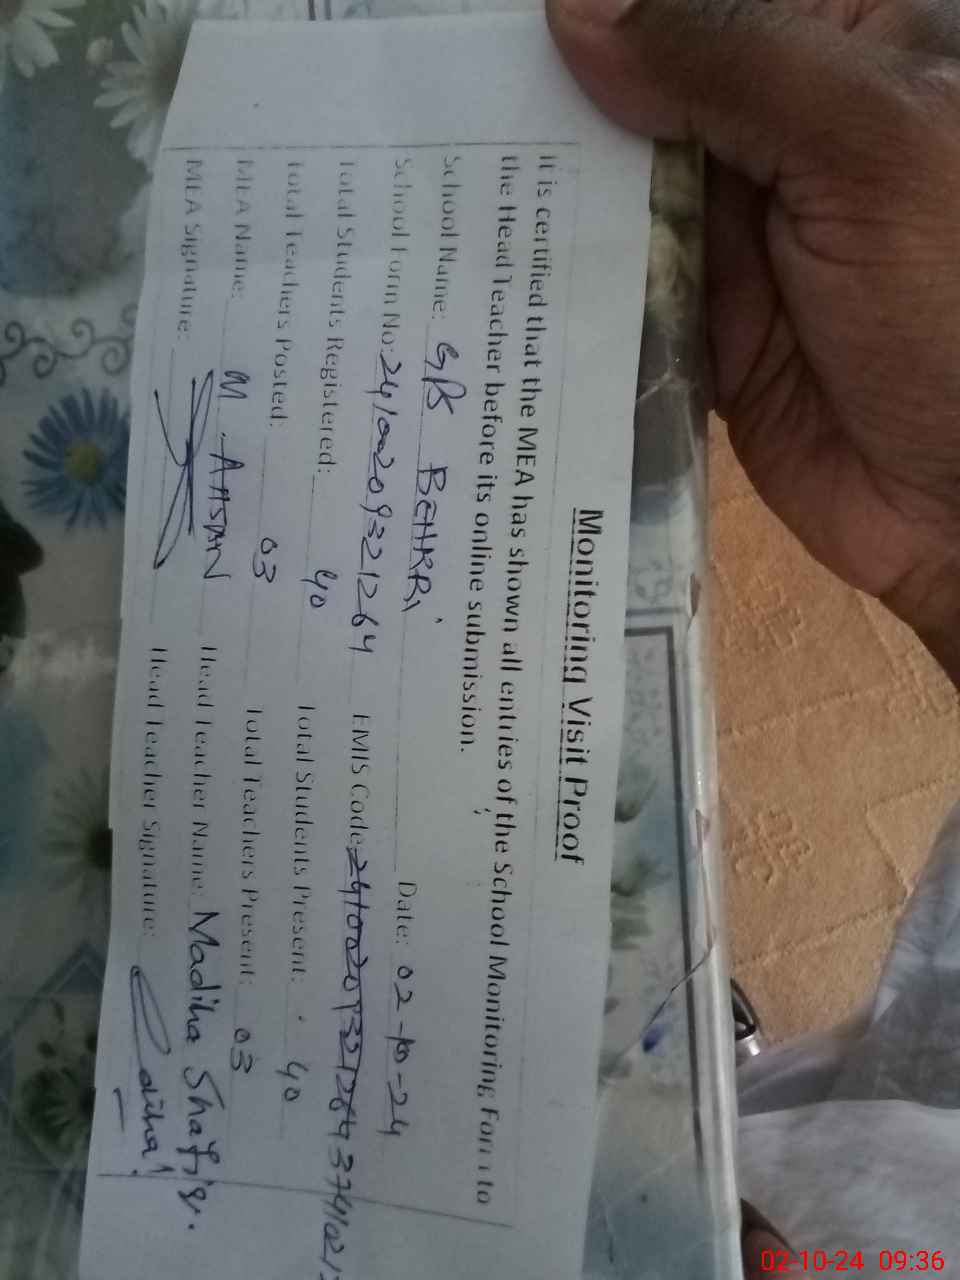 Monitoring Visit Proof
It is certified that the MEA has shown all entries of the School Monitoring Form to
the Head Teacher before its online submission.
School Name: GPS BEHKRi Date: 02-10-24
School Form No: 241002093 21264 EMIS Code: 374102
Total Students Registered: 40 Total Students Present: 40
Total Teachers Posted: 03 Total Teachers Present: 03
MEA Name: M. AHSAN Head Teacher Name: Madiha Shafiq.
MEA Signature: Head Teacher Signature:
02-10-24 09:36